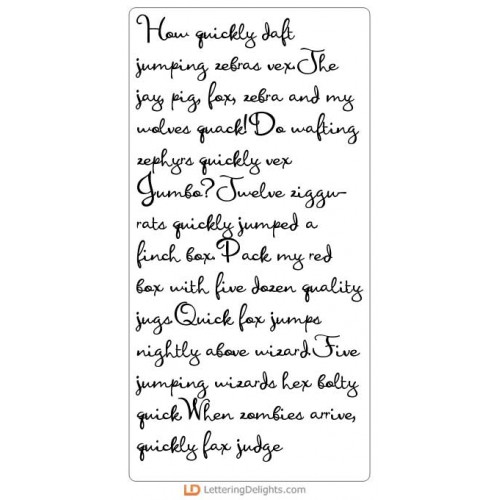 How quickly daft
jumping zebras vex.The
jay, pig, fox, zebra and my
wolves quack!Do wafting
zephyrs quickly vex
Jumbo?Twelve ziggu-
rats quickly jumped a
finch box.Pack my red
box with five dozen quality
jugs.Quick fox jumps
nightly above wizard.Five
jumping wizards hex bolty
quick.When zombies arrive,
quickly fax judge
LD LetteringDelights.com